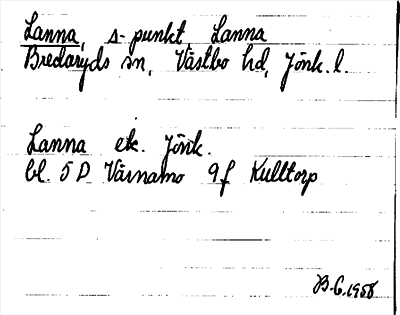 Lanna, s-punkt Lanna
Bredaryds sn, Västbo hd, Jönk. l.
Lanna etc. Jönk.
bl. 5D Värnamo 9f Kulltorp
B.G. 1958